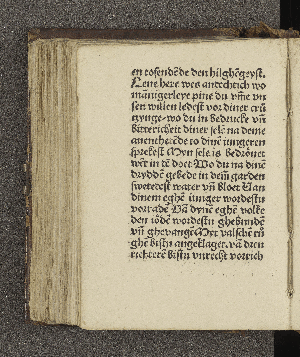 en tosendēde den hilghēgeyst.
Leue here wes andechtich wo
mānigerleye pine du vm̄e vn
sen willen ledest vor diner crū
tzynge. wo du in bedrucke vn̄
bittericheit diner sele na deme
auentherēde to dinē iungeren
sprekest Myn sele is bedrouet
wēt in dē doet Wo du na dinē
drydden gebede in dem garden
swetetest water vn̄ bloet Uan
dinem eghē iunger wordestu
vorradē Uā dynē eghē volke
den iodē wordestu ghebundē
vn̄ ghevangē Myt valschē tů
ghē bistu angeklager. vā dren
richterē bistu vnrecht vorrich